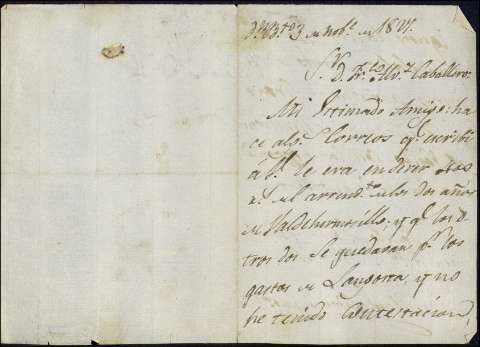 3 de Nobe. de 1807.
Sr. D. Alvz. Caballero.
Mi Estimado Amigo: ha
ce algs. Correos qe. escribi
a V. le era en dever
al arrendto. de los dos años
de Valdehermosillo, y qe. los o
tros dos se quedavan pa. los
gastos de Lansossa, y no
he tenido Contestacion